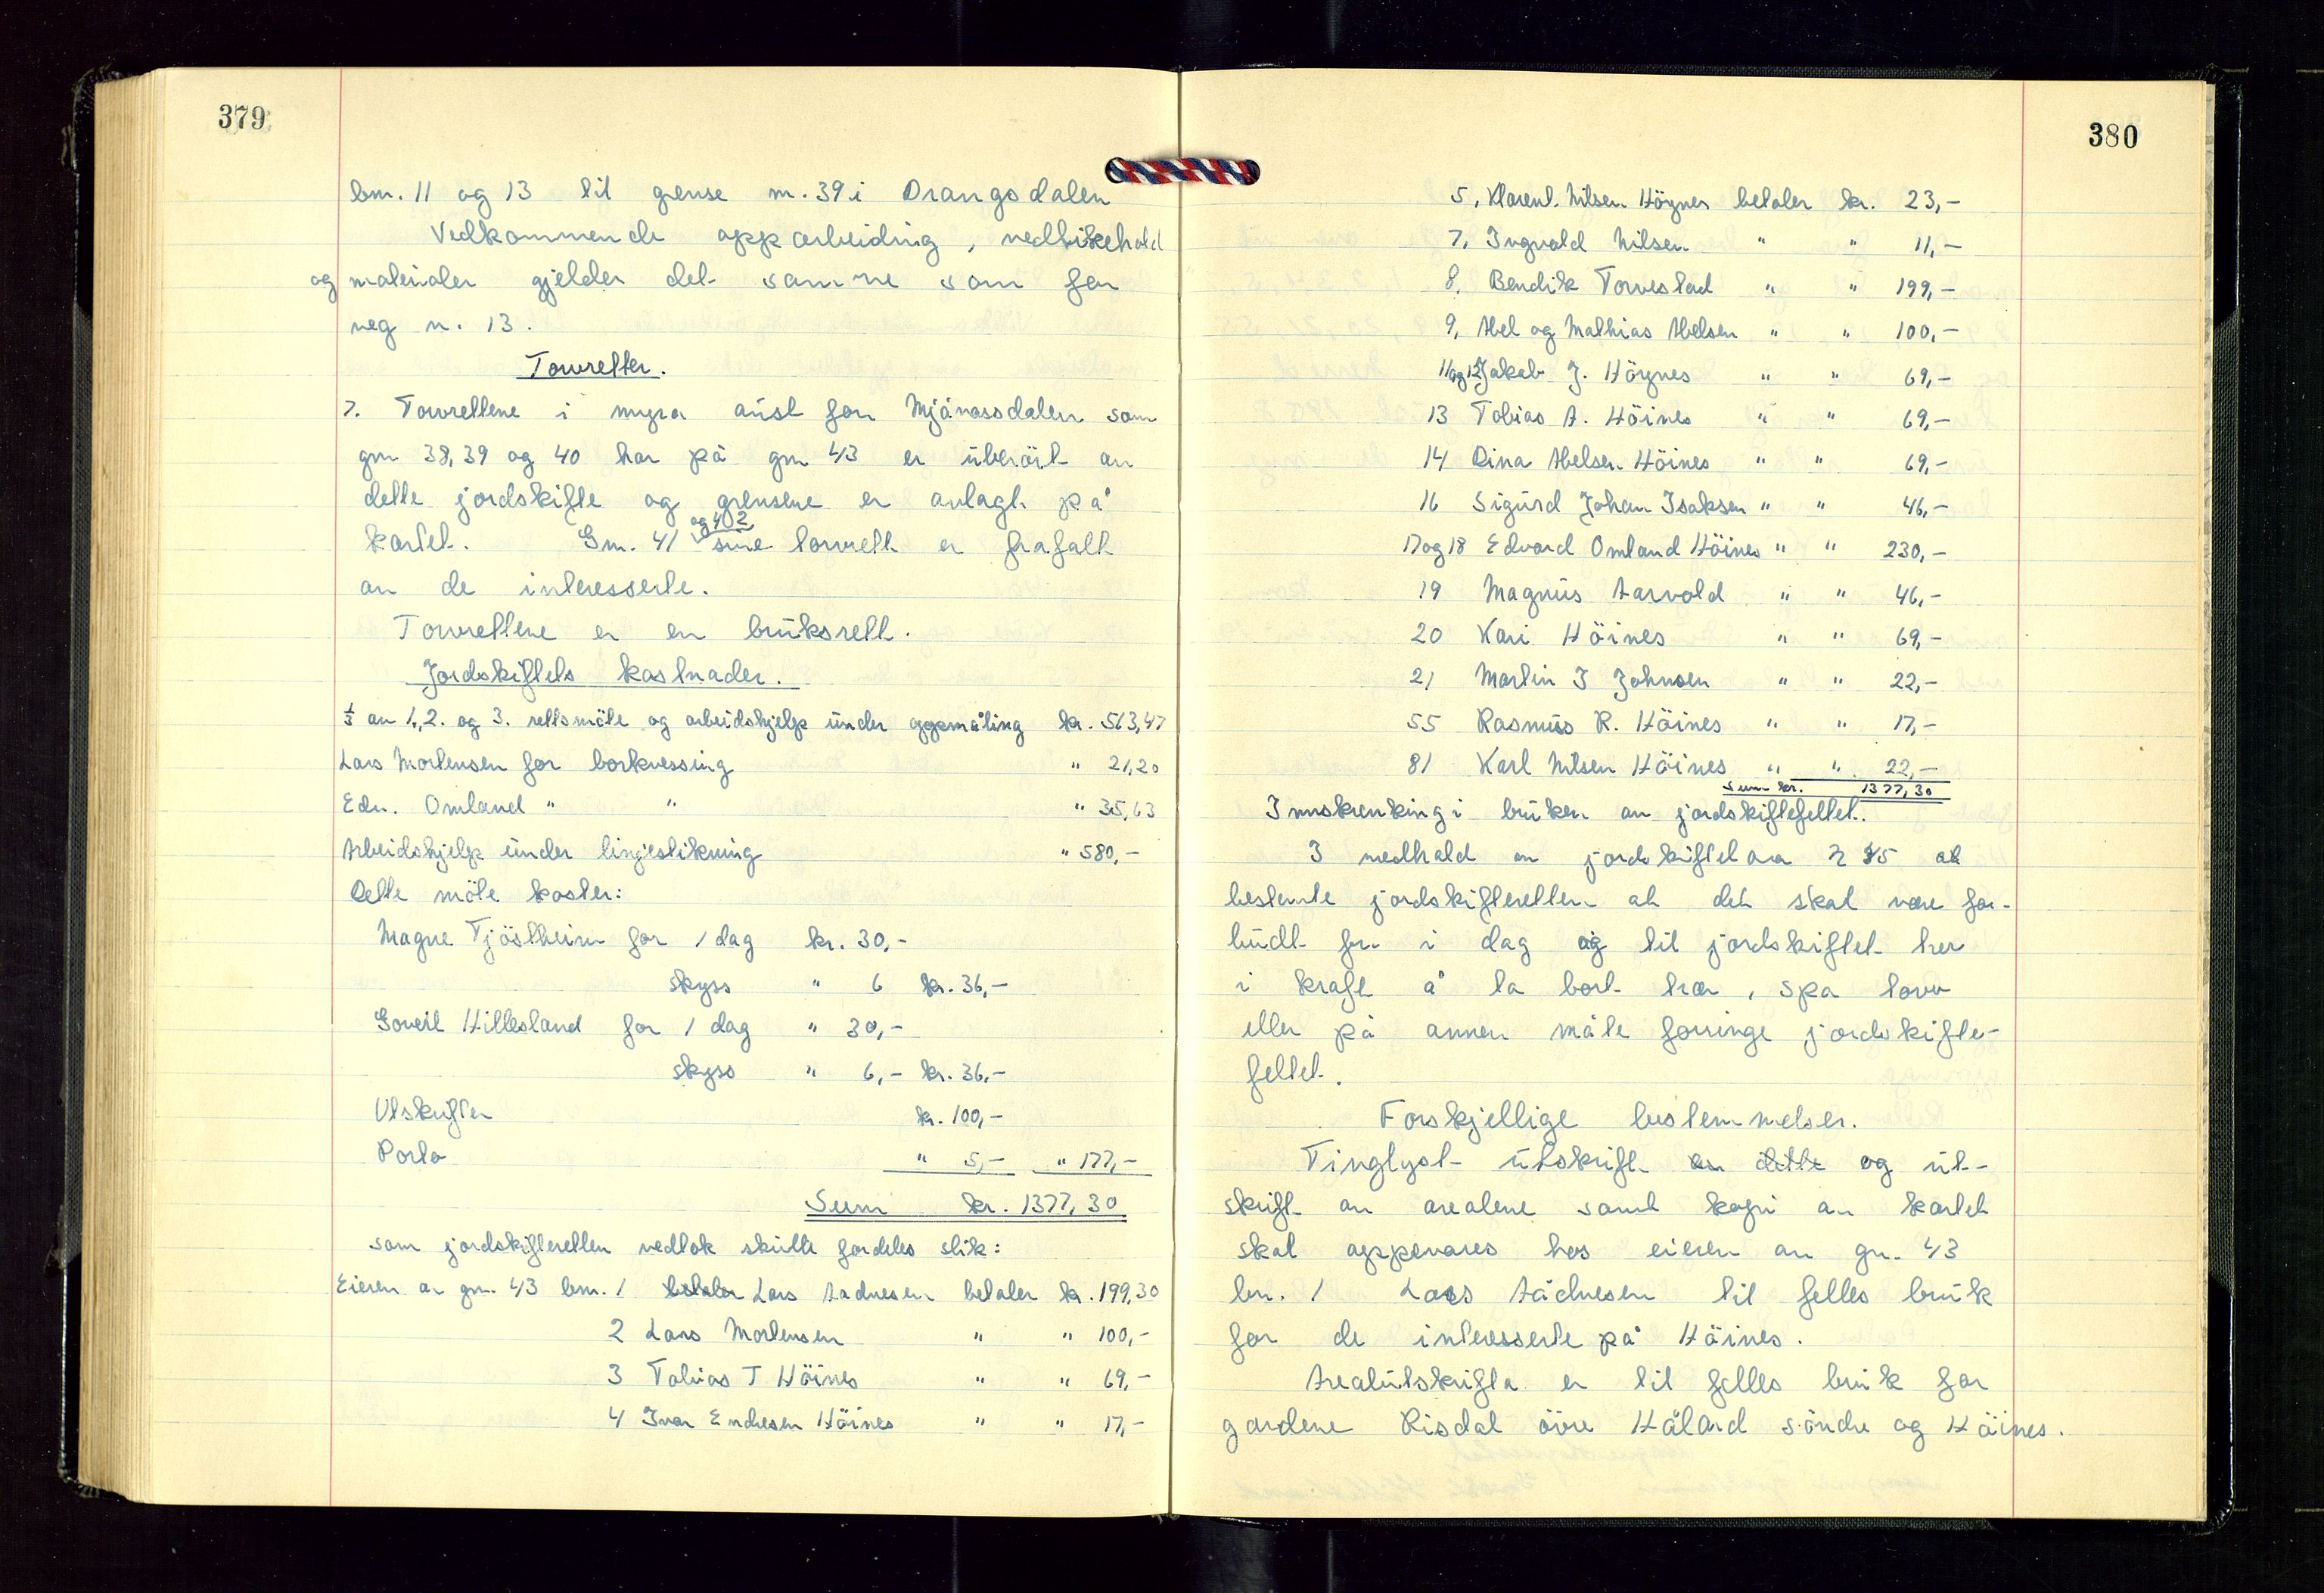 379
bm. 11 og 13 til grense m. 39 i Drangsdalen
Vedkommende opparbeiding, vedlikehold
og materialer gjelder det samme som for
veg n. 13.
Torvretter.
7. Torvrettene i myra aust for Mjåvassdalen som
gm 38, 39 og 40 har på gm 43 er uberört av
dette jordskifte og grensene er avlagt på
kartet. Gm. 41 og 42 sine torvrett er frafalt
av de interesserte.
Torvrettene er en bruksrett.
Jordskiftets kostnader.
1/3 av 1, 2. og 3. rettsmöte og arbeidshjelp under oppmåling kr. 563,47
Lars Mortensen for borkvessing " 21,20
Edv. Omland " " " 35,63
Arbeidshjelp under linjestikning " 580,-
Dette möte koster:
Magne Tjöstheim for 1 dag kr. 30,-
skyss " 6 kr. 36,-
Goveil Hillesland for 1 dag " 30,-
skyss " 6,- kr. 36,-
Utskrifter kr. 100,-
Porto " 5,- " 177,-
Sum kr. 1377,30
som jordskifteretten vedtok skulle fordeles slik:
Eieren av gm. 43 bm. 1 betaler Lars Aadnesen betaler kr. 199,30
2 Lars Mortensen " " 100,-
3 Tobias T Höines " " 69,-
4 Ivar Endresen Höines " " 17,-
380
5, Klarent. Nilsen Högnes betaler kr. 23,-
7, Ingvald Nilsen " " 11,-
8, Bendik Torvestad " " 199,-
9, Abel og Mathias Abelsen " " 100,-
11og12 Jakob J. Högnes " " 69,-
13 Tobias A. Höines " " 69,-
14 Dina Abelsen Höines " " 69,-
16 Sigurd Johan Isaksen " " 46,-
17og18 Edvard Omland Höines " " 230,-
19 Magnus Aarvold " " 46,-
20 Kari Höines " " 69,-
21 Martin I Johnsen " " 22,-
55 Rasmus R. Höines " " 17,-
81 Karl Nilsen Höines " " 22,-
Sum kr. 1377,30
Innskrenking i bruken av jordskiftefeltet.
I medhald av jordskiftelova
bestemte jordskifteretten at det skal være for-
budt fra i dag og til jordskiftet trer
i kraft å ta bort trær, spa torv
eller på annen måte forringe jordskifte-
feltet.
Forskjellige bestemmelser.
Tinglyst utskrift av dette og ut-
skrift av arealene samt kopi av kartet
skal oppevares hos eieren av gn. 43
bn. 1 Lars Aadnesen til felles bruk
for de interesserte på Höines.
Arealutskrifta er til felles bruk for
gardene Risdal övre Håland söndre og Höines.